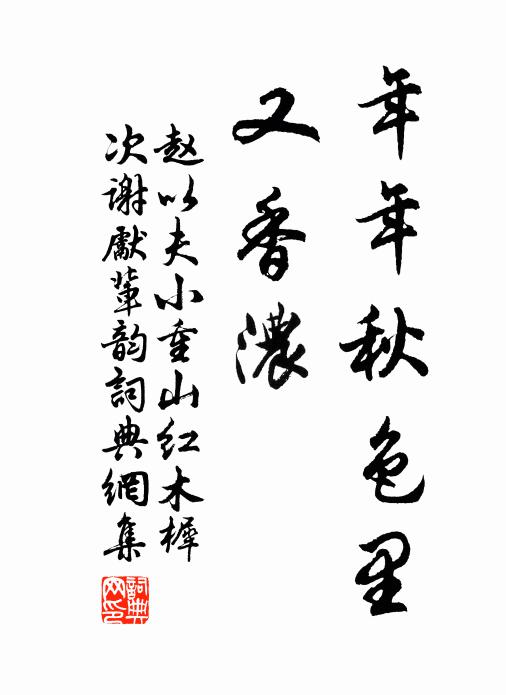 年年秋色里
又香濃
赵以夫小重山红木樨
次谢獻輩韵詞典網集
詞典网印